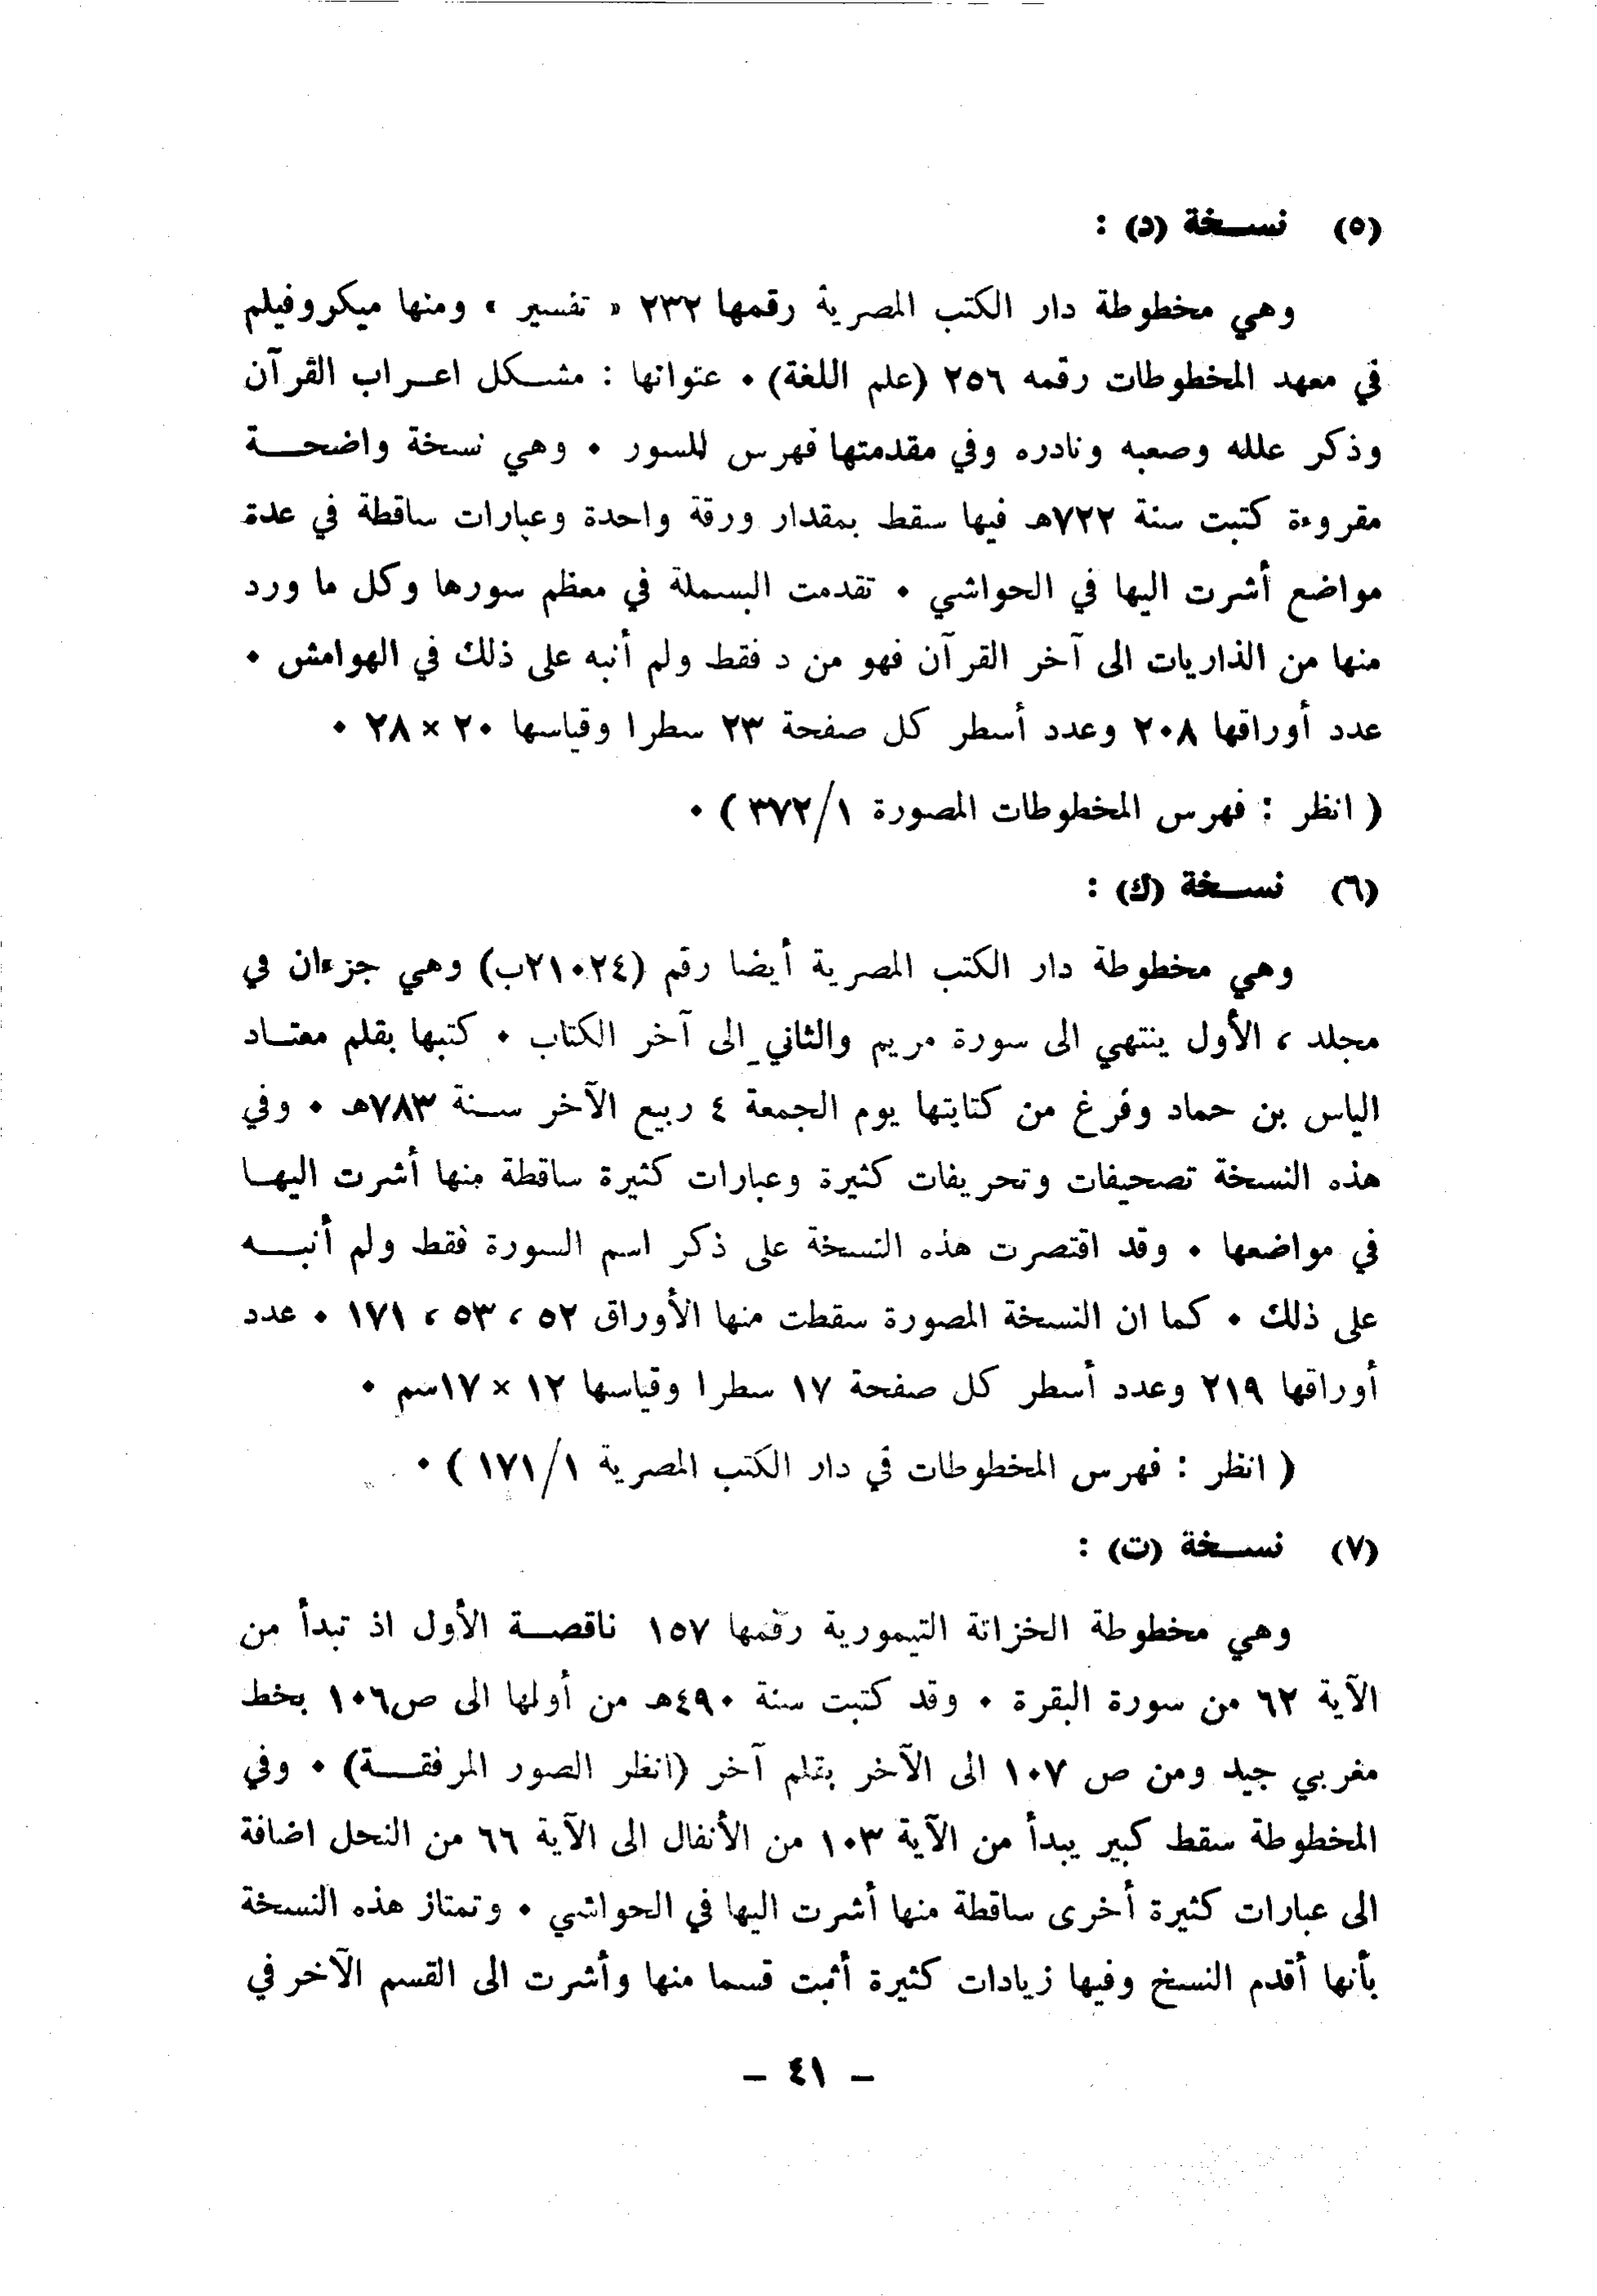 (٥) نسخة (د) :
وهي مخطوطة دار الكتب المصرية رقمها ٢٣٢ « تفسير » ومنها ميكروفيلم
في معهد المخطوطات رقمه ٢٥٦ (علم اللغة) ٠ عنوانها : مشكل اعراب القرآن
وذكر علله وصعبه ونادره وفي مقدمتها فهرس للسور ٠ وهي نسخة واضحة
مقروءة كتبت سنة ٧٢٢هـ فيها سقط بمقدار ورقة واحدة وعبارات ساقطة في عدة
مواضع أشرت اليها في الحواشي ٠ تقدمت البسملة في معظم سورها وكل ما ورد
منها من الذاريات الى آخر القرآن فهو من د فقط ولم أنبه على ذلك في الهوامش ٠
عدد أوراقها ٢٠٨ وعدد أسطر كل صفحة ٢٣ سطرا وقياسها ٢٠ × ٢٨ ٠
( انظر : فهرس المخطوطات المصورة ٣٧٢/١ ) ٠
(٦) نسخة (ك) :
وهي مخطوطة دار الكتب المصرية أيضا رقم (٢١٠٢٤ب) وهي جزءان في
مجلد ، الأول ينتهي الى سورة مريم والثاني الى آخر الكتاب ٠ كتبها بقلم معتاد
الياس بن حماد وفرغ من كتابتها يوم الجمعة ٤ ربيع الآخر سنة ٧٨٣هـ ٠ وفي
هذه النسخة تصحيفات وتحريفات كثيرة وعبارات كثيرة ساقطة منها أشرت اليها
في مواضعها ٠ وقد اقتصرت هذه النسخة على ذكر اسم السورة فقط ولم أنبه
على ذلك ٠ كما ان النسخة المصورة سقطت منها الأوراق ٥٢ ، ٥٣ ، ١٧١ ٠ عدد
أوراقها ٢١٩ وعدد أسطر كل صفحة ١٧ سطرا وقياسها ١٢ × ١٧سم ٠
( انظر : فهرس المخطوطات في دار الكتب المصرية ١٧١/١ ) ٠
(٧) نسخة (ت) :
وهي مخطوطة الخزانة التيمورية رقمها ١٥٧ ناقصة الأول اذ تبدأ من
الآية ٦٢ من سورة البقرة ٠ وقد كتبت سنة ٤٩٠هـ من أولها الى ص١٠٦ بخط
مغربي جيد ومن ص ١٠٧ الى الآخر بقلم آخر (انظر الصور المرفقة) ٠ وفي
المخطوطة سقط كبير يبدأ من الآية ١٠٣ من الأنفال الى الآية ٦٦ من النحل اضافة
الى عبارات كثيرة أخرى ساقطة منها أشرت اليها في الحواشي ٠ وتمتاز هذه النسخة
بأنها أقدم النسخ وفيها زيادات كثيرة أثبت قسما منها وأشرت الى القسم الآخر في
– ٤١ –